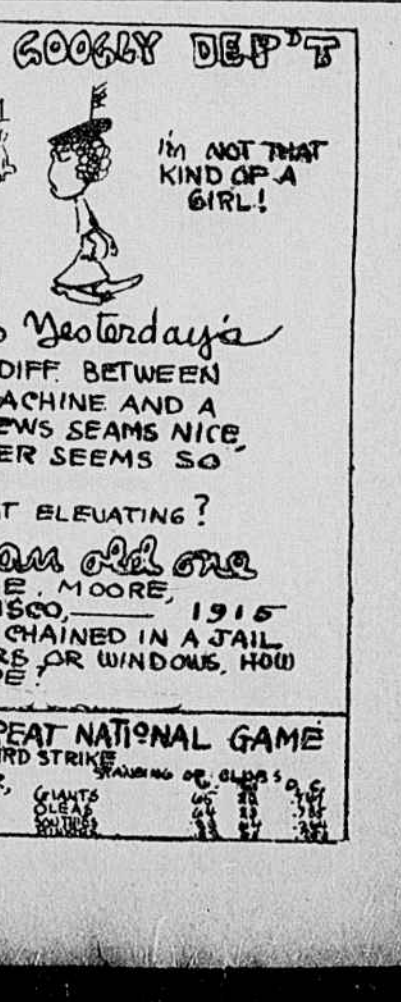 GOOGLY DEP'T
I'm NOT THAT
KIND OF A
GIRL!
Yesterday's
DIFF. BETWEEN
ACHINE AND A
EWS SEAMS NICE,
ER SEEMS SO"
T ELEVATING?
an old one
E. MOORE,
ISCO,—— 1915
CHAINED IN A JAIL
RS OR WINDOWS. HOW
PE?
PEAT NATIONAL GAME
IRD STRIKE
STANDING OF CLUBS
GIANTS